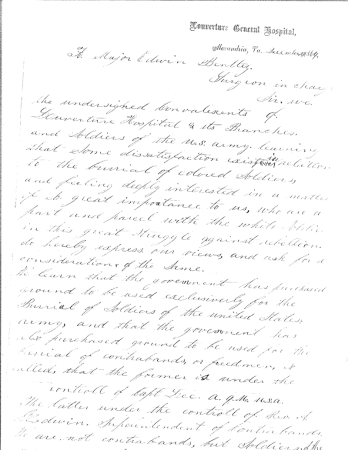 L'Ouverture General Hospital,
Alexandria, Va. December 1864.
To Major Edwin Bentley
Surgeon in char
Sir. we
the undersigned Convalesents of
L'ouverture Hospital & its Branches
and Soldiers of the u.s. army. learning
that Some dissatisfaction exists in relation
to the burrial of colored Soldiers,
and feeling deeply interested in a matter
of So great importance to us, who are a
part and parcel with the white
in this great Struggle against rebellion,
do hereby express our views, and ask for a
consideration of the Same.
learn that the government has purchased
ground to be used exclusively for the
Burial of Soldiers of the united States
army, and that the government has
also purchased ground to be used for the
burial of contrabands, or freedmen,
that the former is under the
controll of Capt Lee. a.q.m. u.s.a.
The latter under the controll of
Gladwin. Superintendent of Contrabands,
are not contrabands, but Soldiers of the